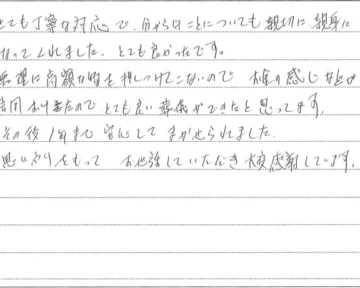 とても丁寧な対応で、分からないことについても親切に親身に
なってくれました。とても良かったです。
無理に高額な物を押しつけてこないので
とても良い葬儀ができたと思ってます。
その後1年まで安心してまかせられました。
思いやりをもって お世話していただき 大変感謝しています。